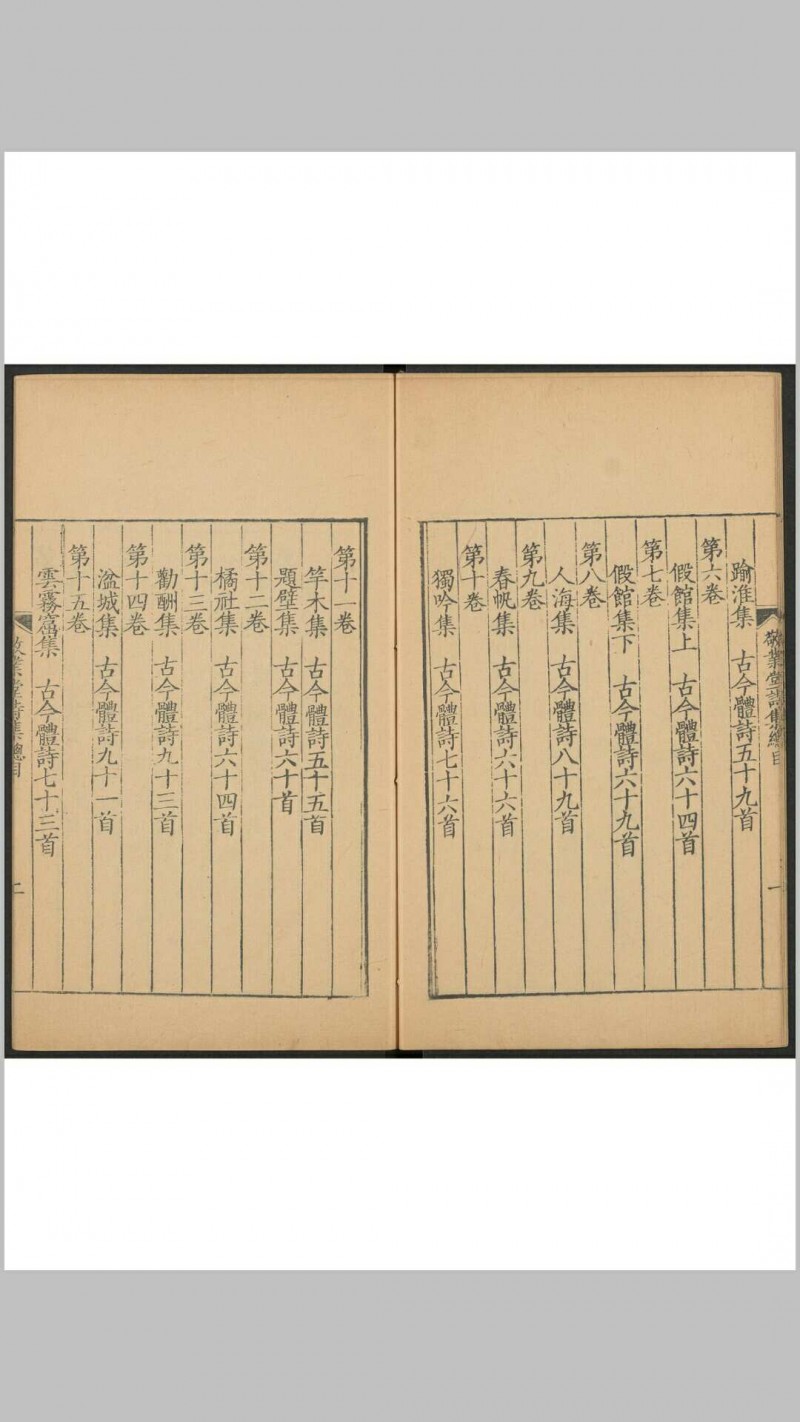 敬業堂詩集總目
一
踰淮集　古今體詩五十九首
第六卷
假館集上　古今體詩六十四首
第七卷
假館集下　古今體詩六十九首
第八卷
人海集　古今體詩八十九首
第九卷
春帆集　古今體詩六十六首
第十卷
獨吟集　古今體詩七十六首
第十一卷
竿木集　古今體詩五十五首
題壁集　古今體詩六十首
第十二卷
橘社集　古今體詩六十四首
第十三卷
勸酬集　古今體詩九十三首
第十四卷
湓城集　古今體詩九十一首
第十五卷
雲霧窟集　古今體詩七十三首
敬業堂詩集總目
二